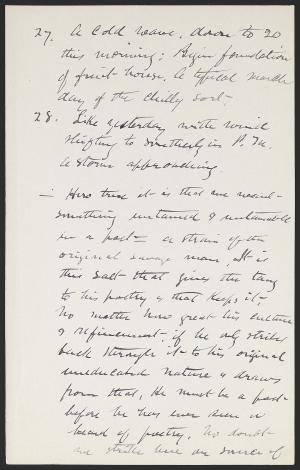 27. A cold wave, down to 20
this morning; Begin foundation
of fruit house. A typical March
day of the chilly sort.
28. Like yesterday with wind
shifting to southerly in P.M.
A storm approaching.
— How true it is that one
something untamed & untamable
in a poet — a strain of the
original savage man. It is
this salt that gives the tang
to his poetry & that keeps it.
No matter how great his culture
& refinement, if he only strikes
back through it to his original
uneducated nature & draws
from that. He must be a poet
before he has ever seen or
heard of poetry. No doubt
we strike here one source of